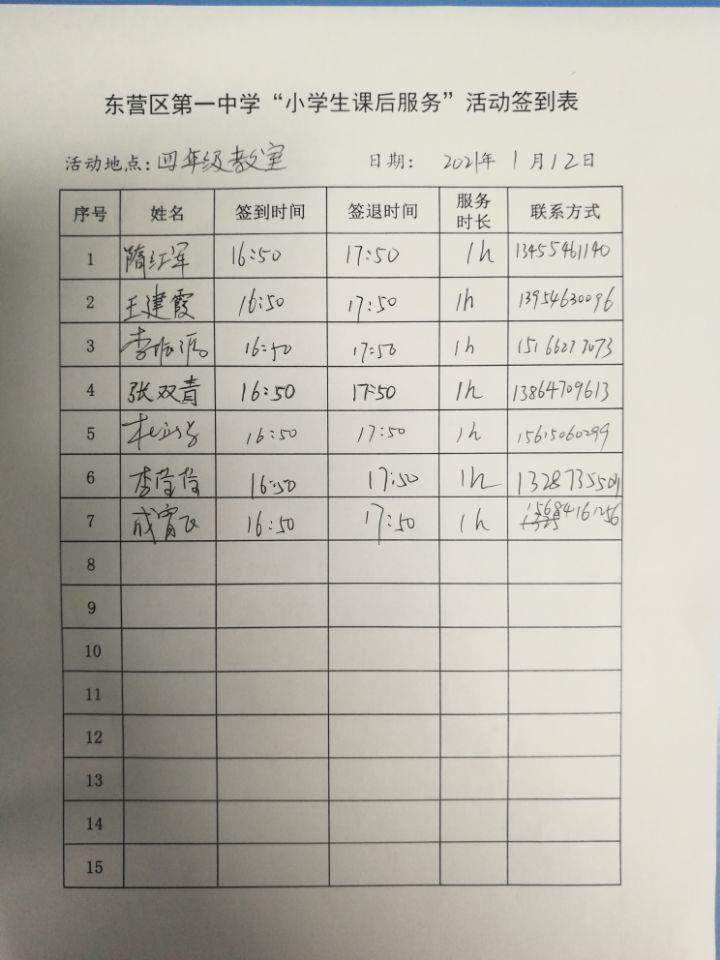 东营区第一中学“小学生课后服务”活动签到表
活动地点：四年级教室 日期： 2021年 1月12日
序号 姓名 签到时间 签退时间 服务时长 联系方式
1 隋红军 16:50 17:50 1h 13455461140
2 王建霞 16:50 17:50 1h 13954630096
3 16:50 17:50 1h 15166277073
4 张双青 16:50 17:50 1h 13864709613
5 16:50 17:50 1h 15615060299
6 李莹莹 16:50 17:50 1h
7 成霄飞 16:50 17:50 1h 15684161256
8
9
10
11
12
13
14
15